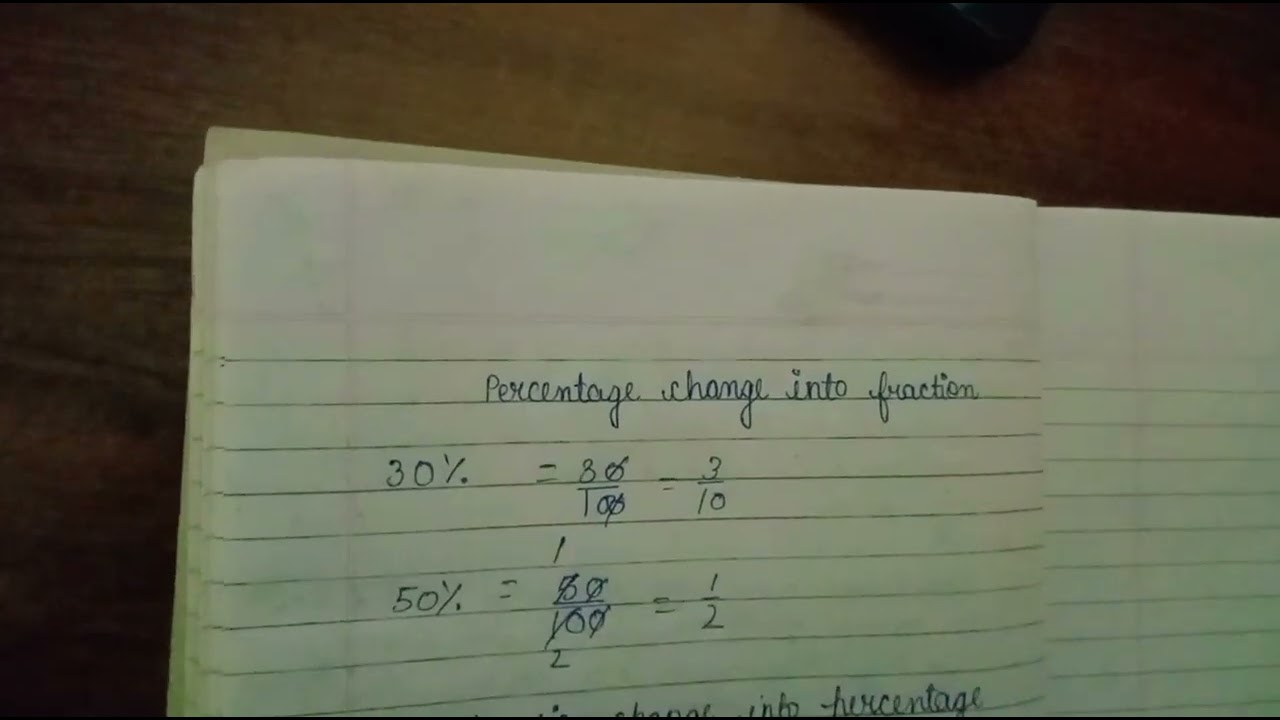 Percentage change into fraction
30% = 30/100 = 3/10
1
50% = 50/100 = 1/2
2
change into percentage